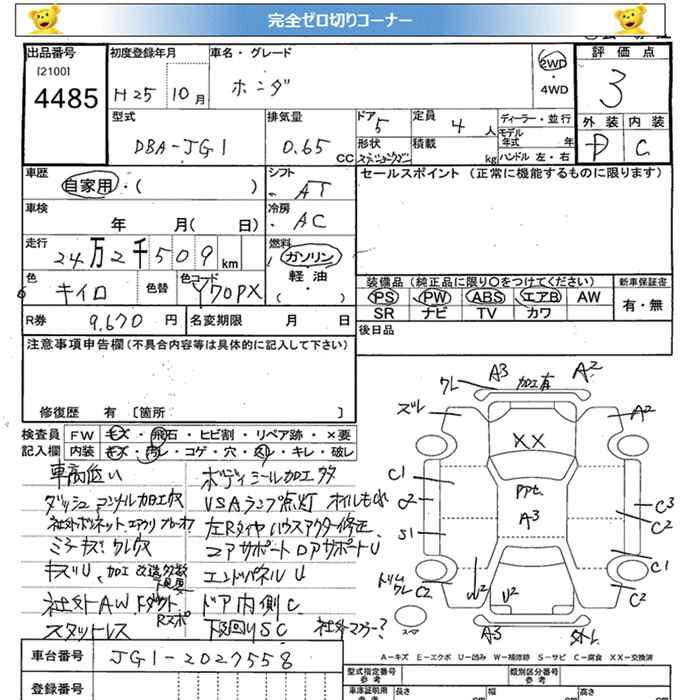 完全ゼロ切りコーナー
出品番号 初度登録年月 車名・グレード 評価点
[2100]
4485 H25 10月 ホンダ 2WD
4WD 3
型式 排気量 ドア 定員 ディーラー・並行 外装 内装
DBA-JG1 0.65 CC 5 4 人 モデル年式 年 D C
形状 積載 kg ハンドル 左・右
車歴 シフト セールスポイント (正常に機能するものに限ります)
自家用・( ) AT
車検 冷房
年 月( 日) AC
走行 燃料
24万2千509km ガソリン
軽・油
( ・ )
色 色替 色コード 装備品 (純正品に限り〇をつけてください) 新車保証書
キイロ Y70PX PS PW ABS エアB AW 有・無
SR ナビ TV カワ
R券 9,670円 名変期限 月 日 後日品
注意事項申告欄(不具合内容等は具体的に記入して下さい)
修復歴 有 [箇所 ]
検査員 FW キズ・飛石・ヒビ割・リペア跡・×要
記入欄 内装 キズ・汚レ・コゲ・穴・スレ・キレ・破レ
車高低い
ダッシュ コンソール加工穴
キズU、加工 改造多数
社外AW
スタッドレス
VSAランプ点灯 オイルもれ
コアサポート ロアサポートU
エンドパネルU
ドア内側C
下回りSC 社外マフラー?
ワレ A3 加工有 A2
ズレ A2
XX
C1 PPt. C3
A3 C2
S1 C1
C2 W2 U2 C2
スペア A3
A-キズ E-エクボ U-凹み W-補修跡 S-サビ C-腐食 XX-交換済
車台番号 JG1-2027558
登録番号
型式指定番号 参考 類別区分番号 参考
車庫証明用 参考 長さ cm 幅 cm 高さ cm